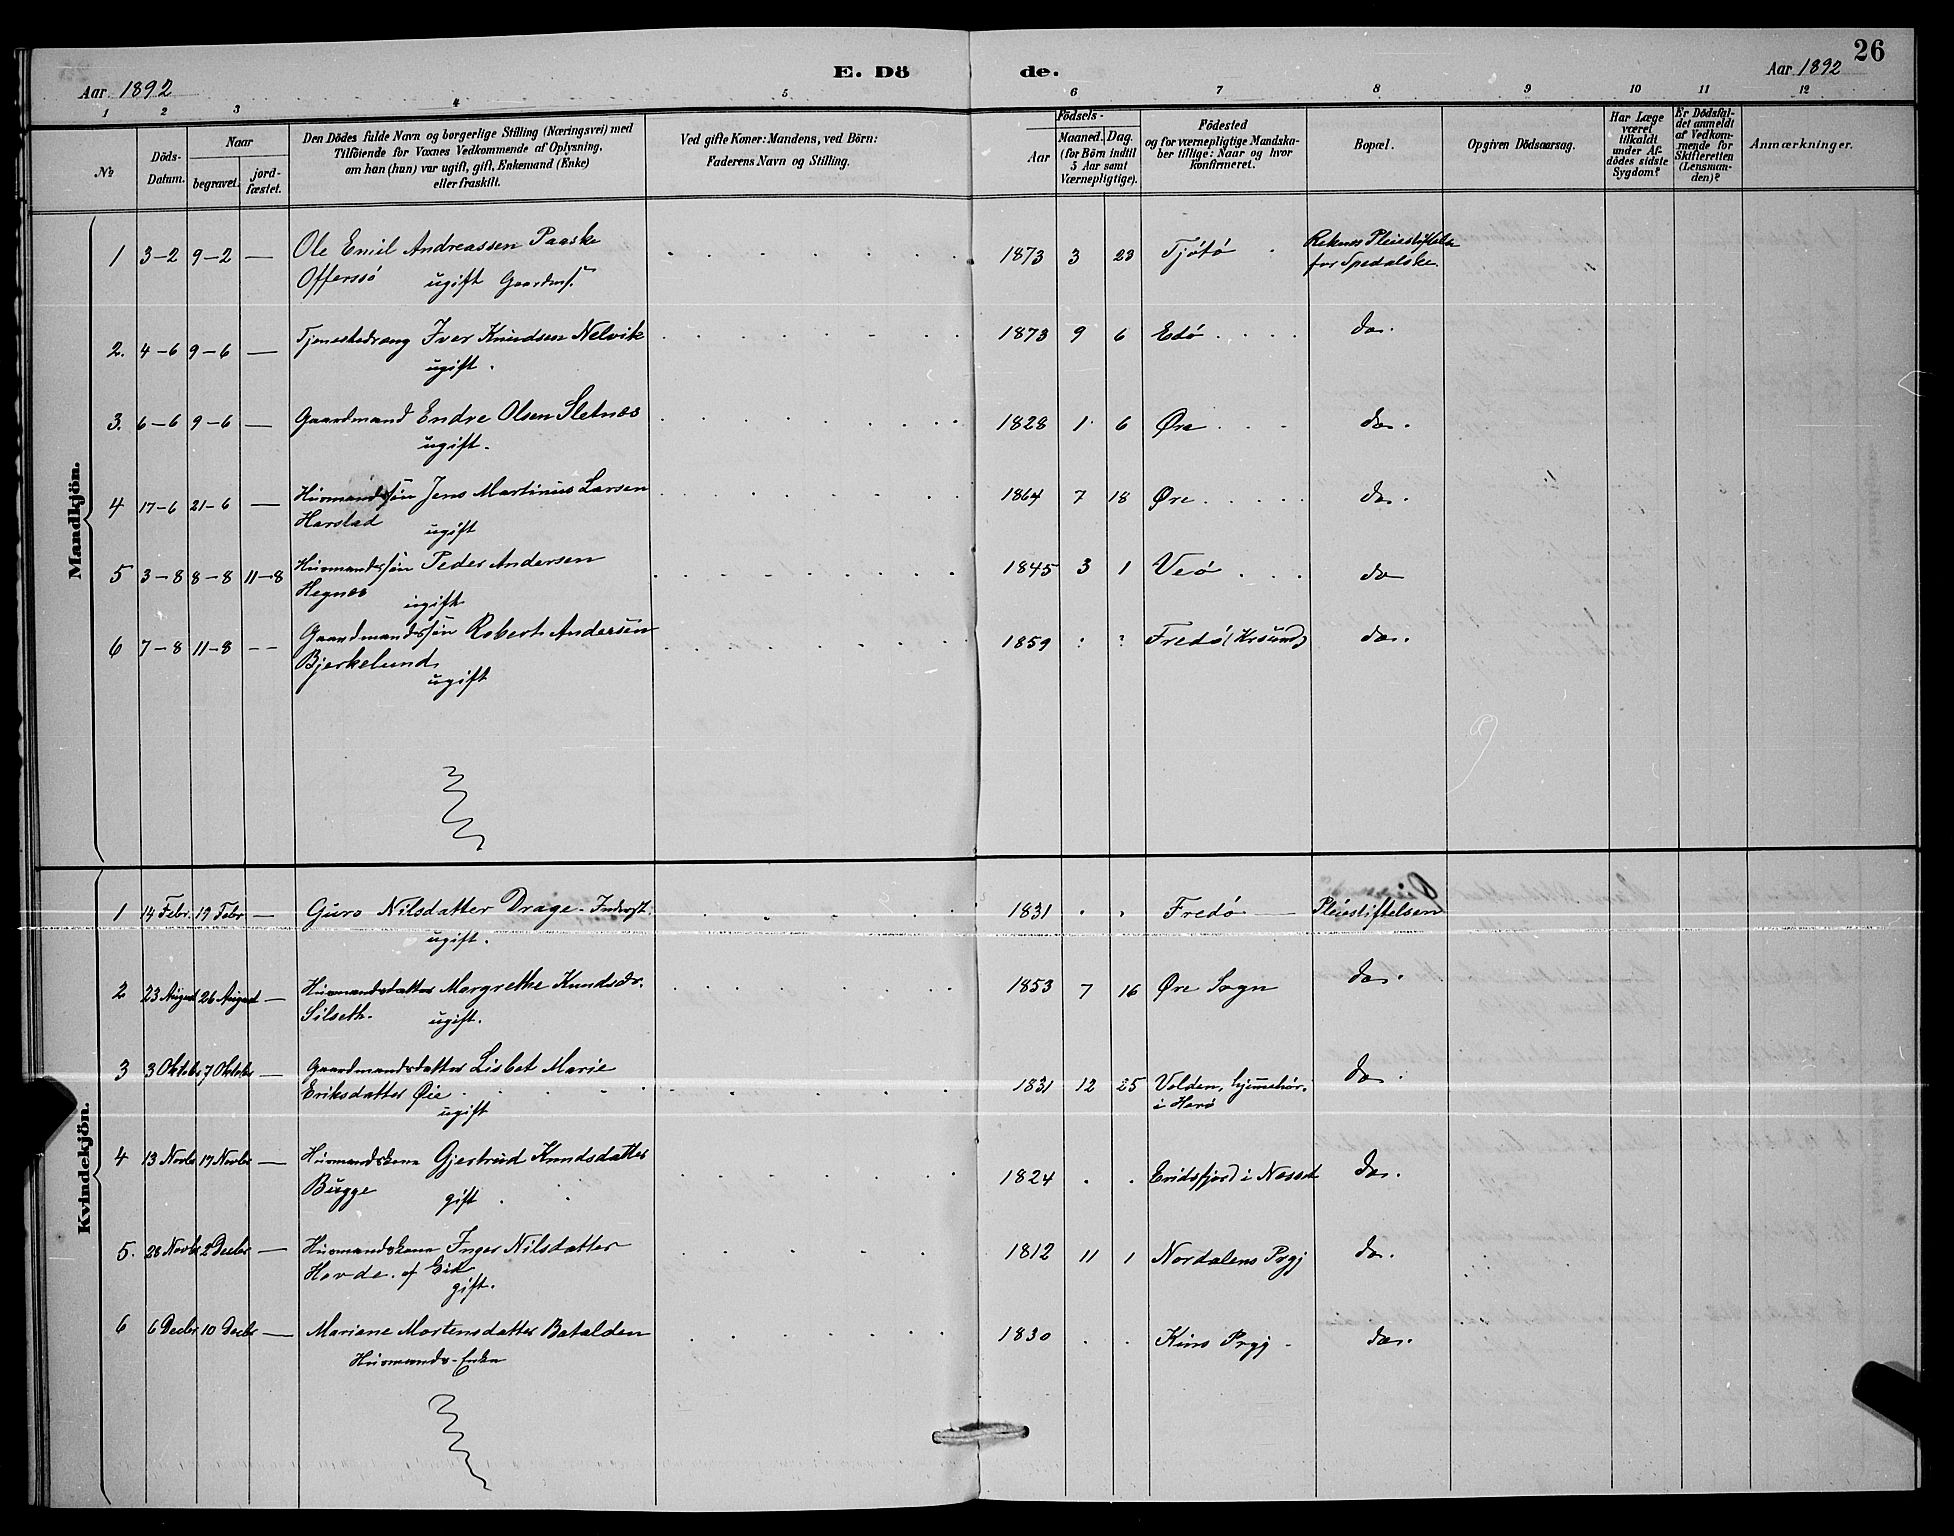 26
Aar 1892
E. Dö
de.
Aar 1892
1 2 3 4 5 6 7 8 9 10 11 12
№
Döds-Datum.
Naar
begravet.
jord-fæstet.
Den Dödes fulde Navn og borgerlige Stilling (Næringsvei) med
Tilföiende for Voxnes Vedkommende af Oplysning,
om han (hun) var ugift, gift, Enkemand (Enke)
eller fraskilt.
Ved gifte Koner: Mandens, ved Börn:
Faderens Navn og Stilling.
Födsels-
Aar
Maaned. Dag.
(for Börn indtil
5 Aar samt
Værnepligtige).
Födested
og for værnepligtige Mandska-
ber tillige: Naar og hvor
konfirmeret.
Bopæl.
Opgiven Dödsaarsag.
Har Læge
været
tilkaldt
under Af-
dödes sidste
Sygdom?
Er Dödsfal-
det anmeldt
af Vedkom-
mende for
Skifteretten
(Lensman-
den)?
Anmærkninger.
Mandkjön.
1 3-2 9-2 — Ole Emil Andreassen Paaske 1873 3 23 Tjötö Reknes Pleiestiftelse
Offersö ugift Gaardms. for Spedalske.
2. 4-6 9-6 — Tjenestedreng Iver Knudsen Nelvik 1873 9 6 Edö do.
ugift.
3. 6-6 9-6 — Gaardmand Endre Olsen Sletnæs 1828 1 6 Øre do.
ugift.
4 17-6 21-6 — Husmandssön Jens Martinus Larsen 1864 7 18 Øre do.
Harstad ugift
5 3-8 8-8 11-8 Husmandssön Peder Andersen 1845 3 1 Veö do
Hegnæs ugift
6 7-8 11-8 -- Gaardmandssön Robert Andersen 1859 : : Fredö (Krsund) do.
Bjerkelund
ugift
Kvindekjön.
1 14 Febr. 19 Febr — Guro Nilsdatter Drage - Inderst. 1831 . . Fredö Pleiestiftelsen
ugift.
2 23 August 26 August — Husmandsdatter Margrethe Knudsdr. 1853 7 16 Øre Sogn do.
Silseth. ugift.
3 3 Oktobr 7 Oktobr — Gaardmandsdatter Lisbet Marie
Eriksdatter Øie 1831 12 25 Volden, hjemehör. do.
ugift i Herö
4 13 Novbr 17 Novbr — Husmandskone Gjertrud Knudsdatter 1824 . . Eridsfjord i Nesset do.
Bugge gift
5. 28 Novbr 2 Decbr — Husmandskone Inger Nilsdatter 1812 11 1 Nordalens Prgj do.
Hovde. af Eid
gift.
6 6 Decbr 10 Decbr — Mariane Mortensdatter Batalden 1830 . . Kins Prgj - do.
Husmands-Enke